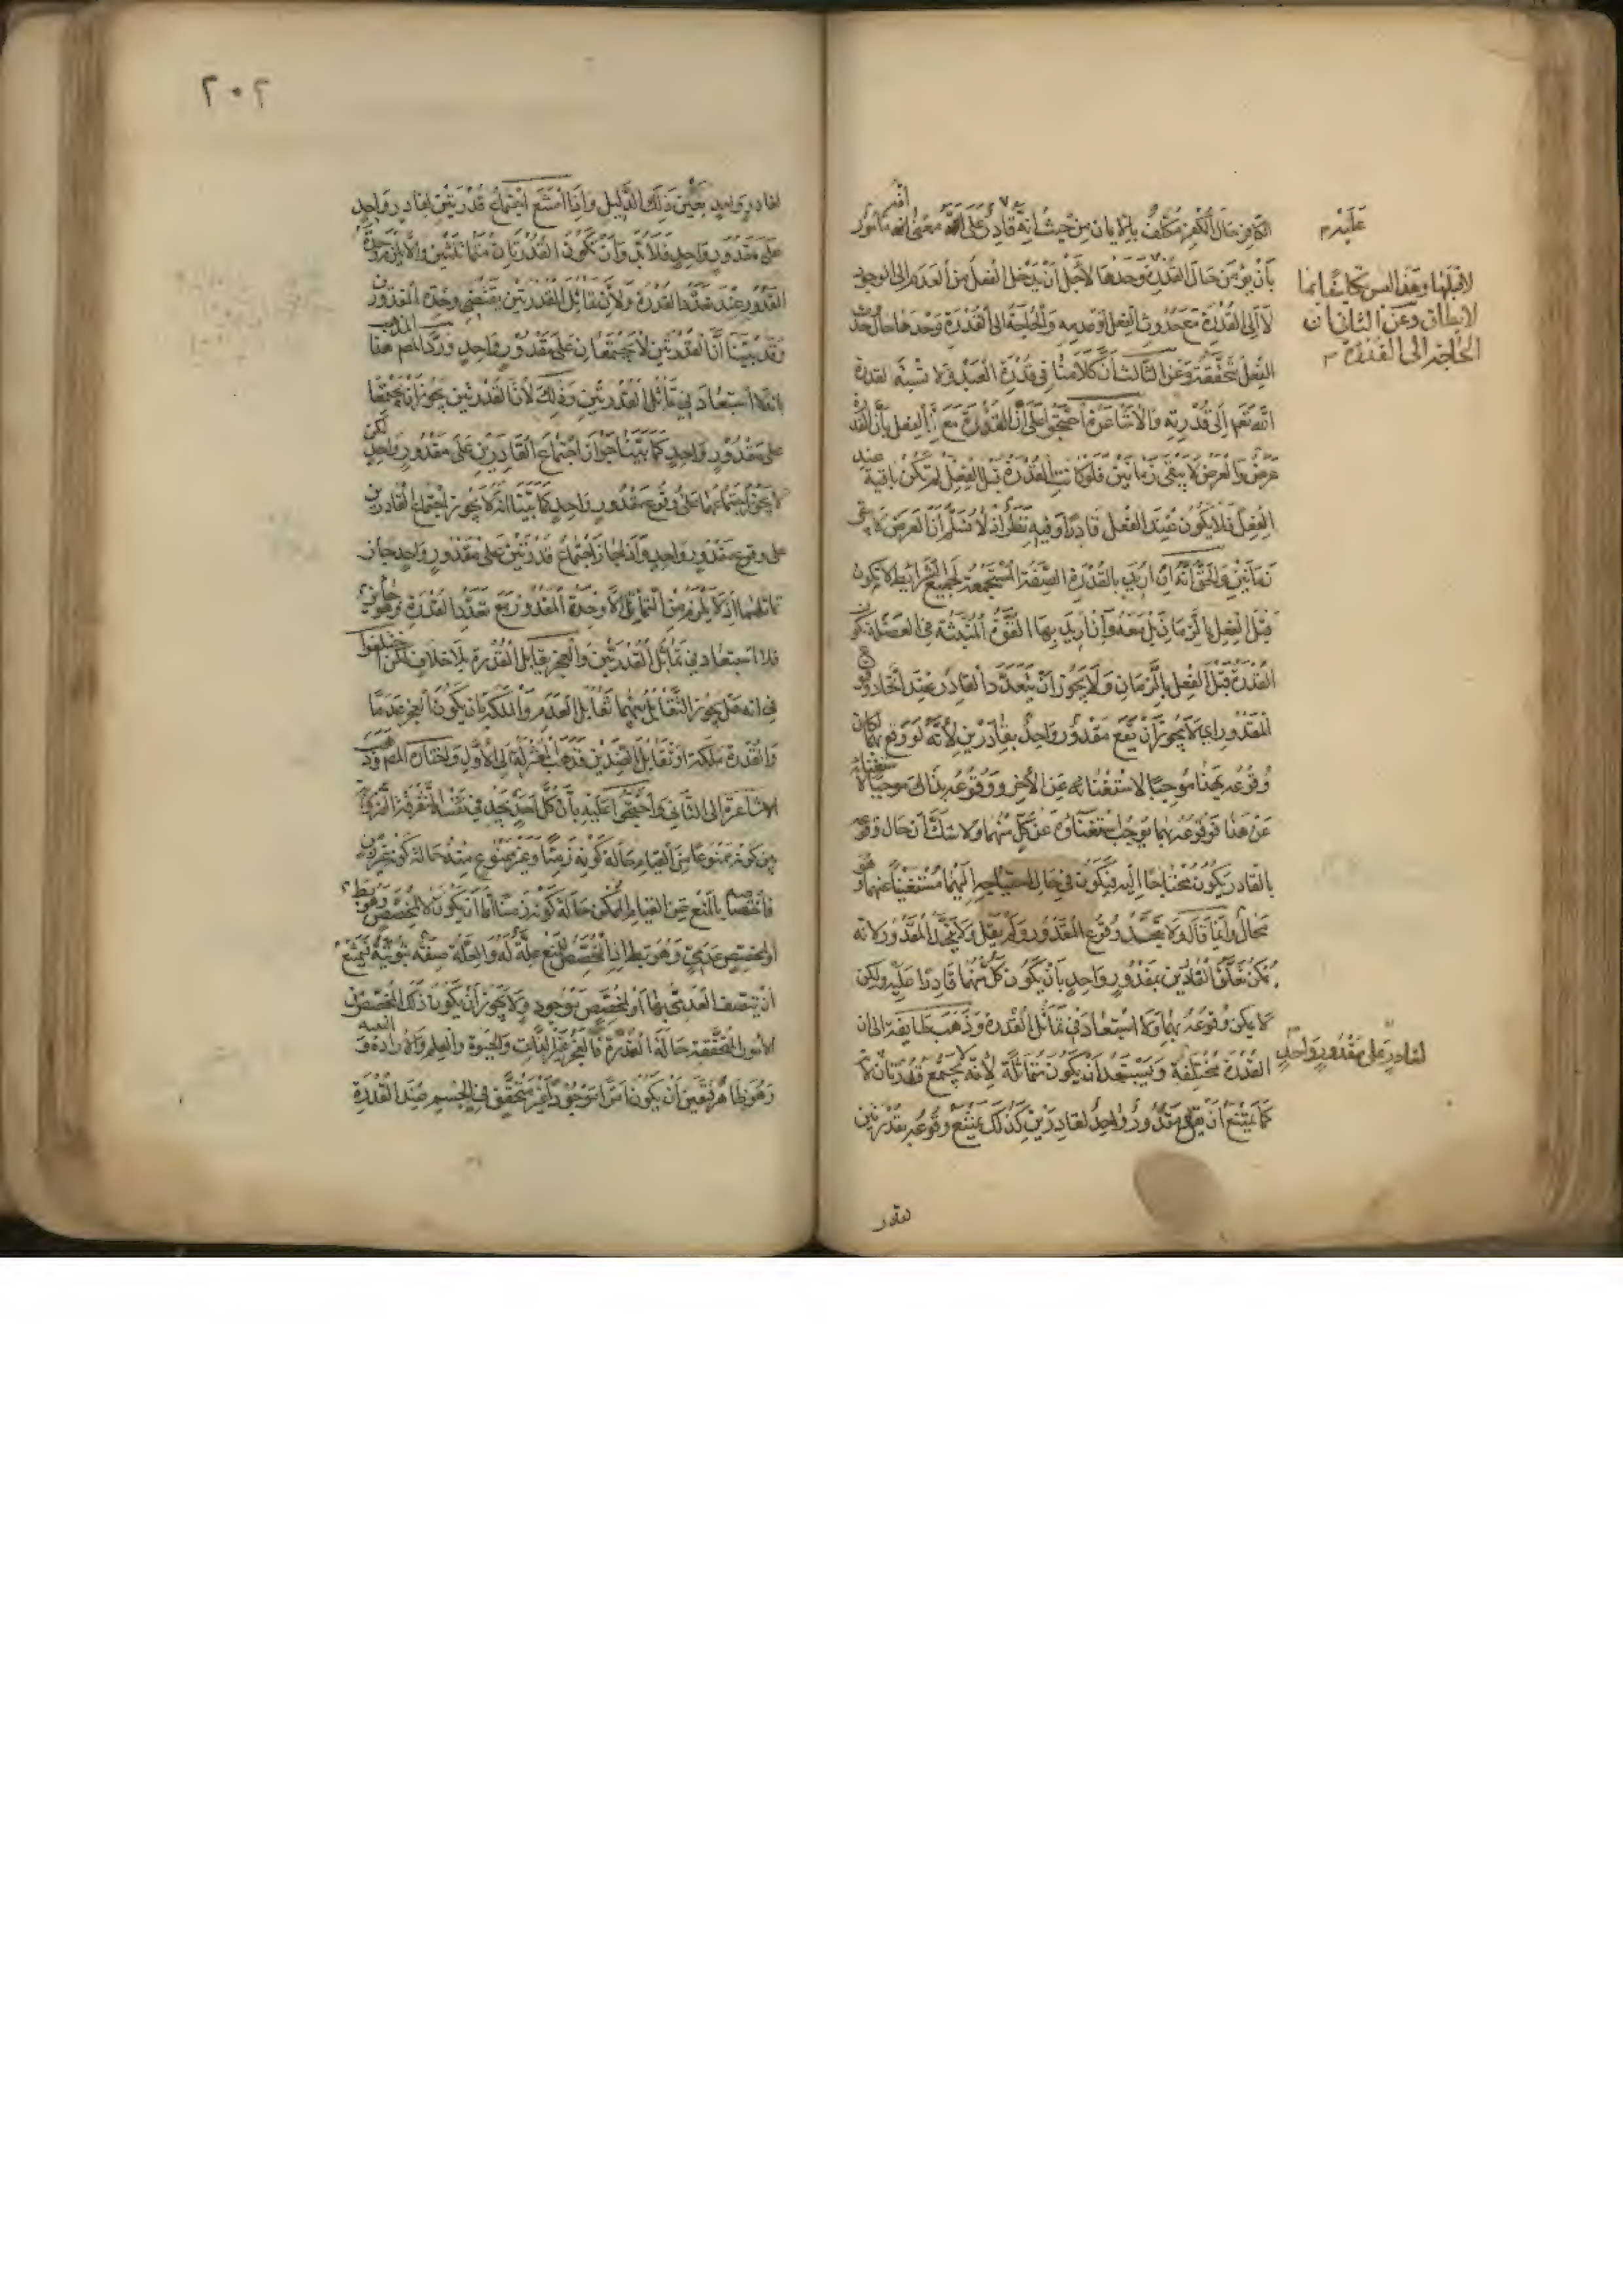 الكافر حال الكفر مكلف بالايمان من حيث انه قادر على معنى انه مأمور
بأن يؤمن حال القدرة وحدها لاجل أن يدخل الفعل من العدم الى الوجود
لا الى القدرة مع حدوث الفعل وعدمه والحاجة الى القدرة وحدها حال حدوث
الفعل متحققة وعن الثالث أن كلامنا في قدرة العبد ولا نسبة لقدرة
الله تعم الى قدرته والاشاعرة احتجوا على أن القدرة مع الفعل بأن القدرة
عرض والعرض لا يبقى زمانين فلو كانت القدرة قبل الفعل لم تكن باقية عند
الفعل فلا يكون عند الفعل قادرا وفيه نظر اذ لا نسلم أن العرض لا يبقى
زمانين والحق انه ان اريد بالقدرة الصفة المستجمعة لجميع الشرايط لا يكون
قبل الفعل بالزمان بل معه وان اريد بها القوة المنبثة في العضلة يكون
القدرة قبل الفعل بالزمان ولا يجوز أن يتعدد القادر عند اتحاد
المقدور اي لا يجوز أن يقع مقدور واحد بقادرين لأنه لو وقع بهما لكان
وقوعه بهذا موجبا لاستغنائه عن الآخر ووقوعه بذاك موجبا لاستغنائه
عن هذا فوقوعه بهما يوجب استغناؤه عن كل منهما ولا شك أن حال وقوعه
بالقادر يكون محتاجا اليه فيكون في حال احتياجه اليهما مستغنيا عنهما وهو
محال وانما قال ولا يتحد وقوع المقدور ولم يقل ولا يتحد المقدور لانه
يمكن تعلق القادرين بمقدور واحد بأن يكون كل منهما قادرا عليه ولكن
لا يكن وقوعه بهما ولا استبعاد في تماثل القدرة وذهب طايفة الى ان
القدرة مختلفة ويستبعد أن يكون متماثلة لأنه لا يجتمع قدرتان
كما يمتنع أن يقع مقدور واحد لقادرين كذلك يمتنع وقوعه بقدرتين
عليه م
لا قبلها وهذا ليس تكليفا بما
لا يطاق وعن الثاني ان
الحاجة الى القدرة م
لقادر على مقدور واحد
٢٠٢
لقادر واحد بعين ذلك الدليل واذا امتنع اجتماع قدرتين لقادر واحد
على مقدور واحد فلا بد وأن تكون القدرتان متماثلتين والا يلزم وحدة
المقدور عند تعدد القدرة ولان تماثل القدرتين يقتضي وحدة المقدور
وقد بينا أن القدرتين لا يجتمعان على مقدور واحد ورد المص هذا المذهب
بانه لا استبعاد في تماثل القدرتين وذلك لأن القدرتين يجوز ان يجتمعا
على مقدور واحد كما بينا جواز اجتماع القادرين على مقدور واحد لكن
لا يجوز اجتماعهما على وقوع مقدور واحد كما بينا انه لا يجوز اجتماع القادرين
على وقوع مقدور واحد واذا جاز اجتماع قدرتين على مقدور واحد جاز
تماثلهما اذ لا يلزم من التماثل الا وحدة المقدور مع تعدد القدرة وهو جائز
فلا استبعاد في تماثل القدرتين والعجز يقابل القدرة بلا خلاف لكن اختلفوا
في انه هل يجوز التقابل بينهما تقابل العدم والملكة بان يكون العجز عدما
والقدرة ملكة او تقابل الضدين فذهب المعتزلة الى الأول واختاره المص وذهب
الاشاعرة الى الثاني واحتجوا عليه بأن كل احد يجد في نفسه التفرقة
بين كونه ممنوعا من القيام حالة كونه زمنا وغير ممنوع منه حالة كونه غير زمن
فاختصاصه بالمنع من القيام الممكن حالة كونه زمنا اما ان يكون لا لمخصص وهو بط
او لمخصص عدمي وهو بط اذ المخصص للمنع علة له والعلة صفة ثبوتية فيمتنع
أن يتصف العدمي بها أو لمخصص موجود ولا يجوز أن يكون ذلك المخصص من
الأمور المتحققة حالة القدرة فالعجز غير الذات والحيوة والعلم والارادة و
وهو ظاهر فتعين أن يكون امرا موجودا غير متحقق في الجسم عند القدرة